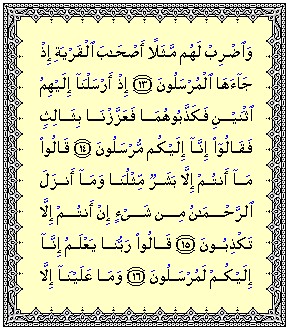 وَٱضْرِبْ لَهُم مَّثَلًا أَصْحَٰبَ ٱلْقَرْيَةِ إِذْ
جَآءَهَا ٱلْمُرْسَلُونَ ١٣ إِذْ أَرْسَلْنَآ إِلَيْهِمُ
ٱثْنَيْنِ فَكَذَّبُوهُمَا فَعَزَّزْنَا بِثَالِثٍ
فَقَالُوٓا۟ إِنَّآ إِلَيْكُم مُّرْسَلُونَ ١٤ قَالُوا۟
مَآ أَنتُمْ إِلَّا بَشَرٌ مِّثْلُنَا وَمَآ أَنزَلَ
ٱلرَّحْمَٰنُ مِن شَىْءٍ إِنْ أَنتُمْ إِلَّا
تَكْذِبُونَ ١٥ قَالُوا۟ رَبُّنَا يَعْلَمُ إِنَّآ
إِلَيْكُمْ لَمُرْسَلُونَ ١٦ وَمَا عَلَيْنَآ إِلَّا